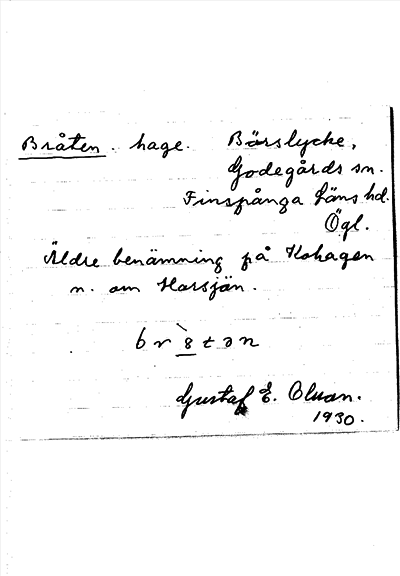 Bråten. hage. Bärslycke,
Godegårds sn.
Finspånga Läns hd.
Ögl.
Äldre benämning på Kohagen
n. om Horsjön.
br8tən
Gustaf E. Olsson.
1930.